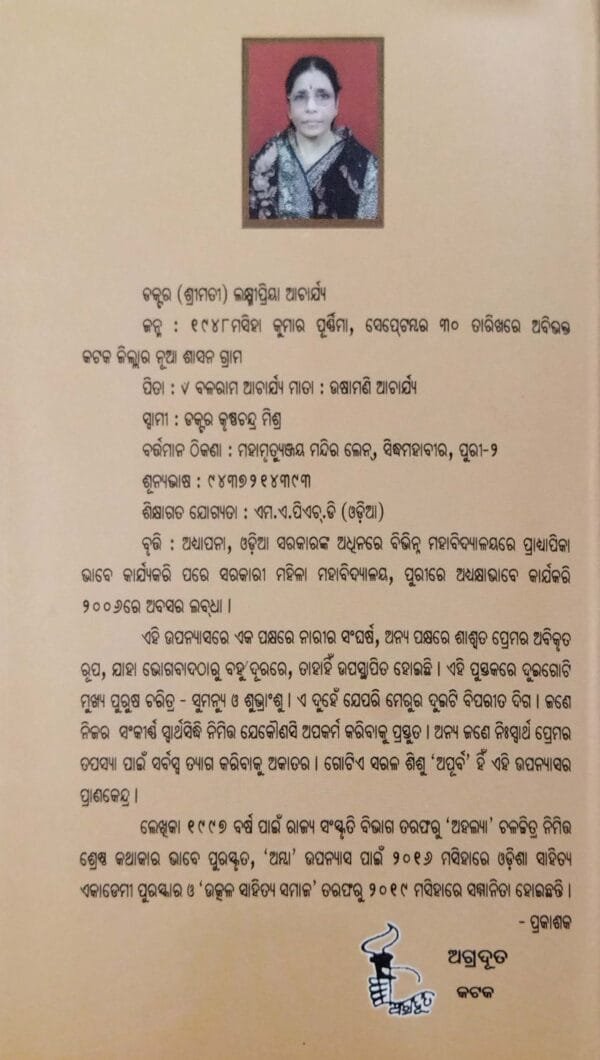 ଡକ୍ଟର (ଶ୍ରୀମତୀ) ଲକ୍ଷ୍ମୀପ୍ରିୟା ଆଚାର୍ଯ୍ୟ
ଜନ୍ମ : ୧୯୪୮ମସିହା କୁମାର ପୂର୍ଣ୍ଣିମା, ସେପ୍ଟେମ୍ବର ୩୦ ତାରିଖରେ ଅବିଭକ୍ତ
କଟକ ଜିଲ୍ଲାର ନୂଆ ଶାସନ ଗ୍ରାମ
ପିତା : ୰ ବଳରାମ ଆଚାର୍ଯ୍ୟ ମାତା : ଉଷାମଣି ଆଚାର୍ଯ୍ୟ
ସ୍ୱାମୀ : ଡକ୍ଟର କୃଷ୍ଣଚନ୍ଦ୍ର ମିଶ୍ର
ବର୍ତ୍ତମାନ ଠିକଣା : ମହାମୃତ୍ୟୁଞ୍ଜୟ ମନ୍ଦିର ଲେନ୍, ସିଦ୍ଧମହାବୀର, ପୁରୀ-୨
ଶୂନ୍ୟଭାଷ : ୯୪୩୭୨୧୪୩୯୩
ଶିକ୍ଷାଗତ ଯୋଗ୍ୟତା : ଏମ.ଏ.ପିଏଚ୍.ଡି (ଓଡ଼ିଆ)
ବୃତ୍ତି : ଅଧ୍ୟାପନା, ଓଡ଼ିଆ ସରକାରଙ୍କ ଅଧିନରେ ବିଭିନ୍ନ ମହାବିଦ୍ୟାଳୟରେ ପ୍ରାଧ୍ୟାପିକା
ଭାବେ କାର୍ଯ୍ୟକରି ପରେ ସରକାରୀ ମହିଳା ମହାବିଦ୍ୟାଳୟ, ପୁରୀରେ ଅଧ୍ୟକ୍ଷାଭାବେ କାର୍ଯକରି
୨୦୦୬ରେ ଅବସର ଲବ୍ଧା ।
ଏହି ଉପନ୍ୟାସରେ ଏକ ପକ୍ଷରେ ନାରୀର ସଂଘର୍ଷ, ଅନ୍ୟ ପକ୍ଷରେ ଶାଶ୍ୱତ ପ୍ରେମର ଅବିକୃତ
ରୂପ, ଯାହା ଭୋଗବାଦଠାରୁ ବହୁ ଦୂରରେ, ତାହାହିଁ ଉପସ୍ଥାପିତ ହୋଇଛି । ଏହି ପୁସ୍ତକରେ ଦୁଇଗୋଟି
ମୁଖ୍ୟ ପୁରୁଷ ଚରିତ୍ର - ସୁମନ୍ୟୁ ଓ ଶୁଭ୍ରାଂଶୁ । ଏ ଦୁହେଁ ଯେପରି ମେରୁର ଦୁଇଟି ବିପରୀତ ଦିଗ । ଜଣେ
ନିଜର ସଂକୀର୍ଣ୍ଣ ସ୍ୱାର୍ଥସିଦ୍ଧି ନିମିତ୍ତ ଯେକୌଣସି ଅପକର୍ମ କରିବାକୁ ପ୍ରସ୍ତୁତ । ଅନ୍ୟ ଜଣେ ନିଃସ୍ୱାର୍ଥ ପ୍ରେମର
ତପସ୍ୟା ପାଇଁ ସର୍ବସ୍ୱ ତ୍ୟାଗ କରିବାକୁ ଅକାତର । ଗୋଟିଏ ସରଳ ଶିଶୁ ‘ଅପୂର୍ବ’ ହିଁ ଏହି ଉପନ୍ୟାସର
ପ୍ରାଣକେନ୍ଦ୍ର ।
ଲେଖିକା ୧୯୯୭ ବର୍ଷ ପାଇଁ ରାଜ୍ୟ ସଂସ୍କୃତି ବିଭାଗ ତରଫରୁ ‘ଅହଲ୍ୟା’ ଚଳଚ୍ଚିତ୍ର ନିମିତ୍ତ
ଶ୍ରେଷ୍ଠ କଥାକାର ଭାବେ ପୁରସ୍କୃତ, ‘ଅମ୍ବା’ ଉପନ୍ୟାସ ପାଇଁ ୨୦୧୬ ମସିହାରେ ଓଡ଼ିଶା ସାହିତ୍ୟ
ଏକାଡେମୀ ପୁରସ୍କାର ଓ ‘ଉତ୍କଳ ସାହିତ୍ୟ ସମାଜ’ ତରଫରୁ ୨୦୧୯ ମସିହାରେ ସମ୍ମାନିତା ହୋଇଛନ୍ତି ।
- ପ୍ରକାଶକ
ଅଗ୍ରଦୂତ
ଅଗ୍ରଦୂତ
କଟକ